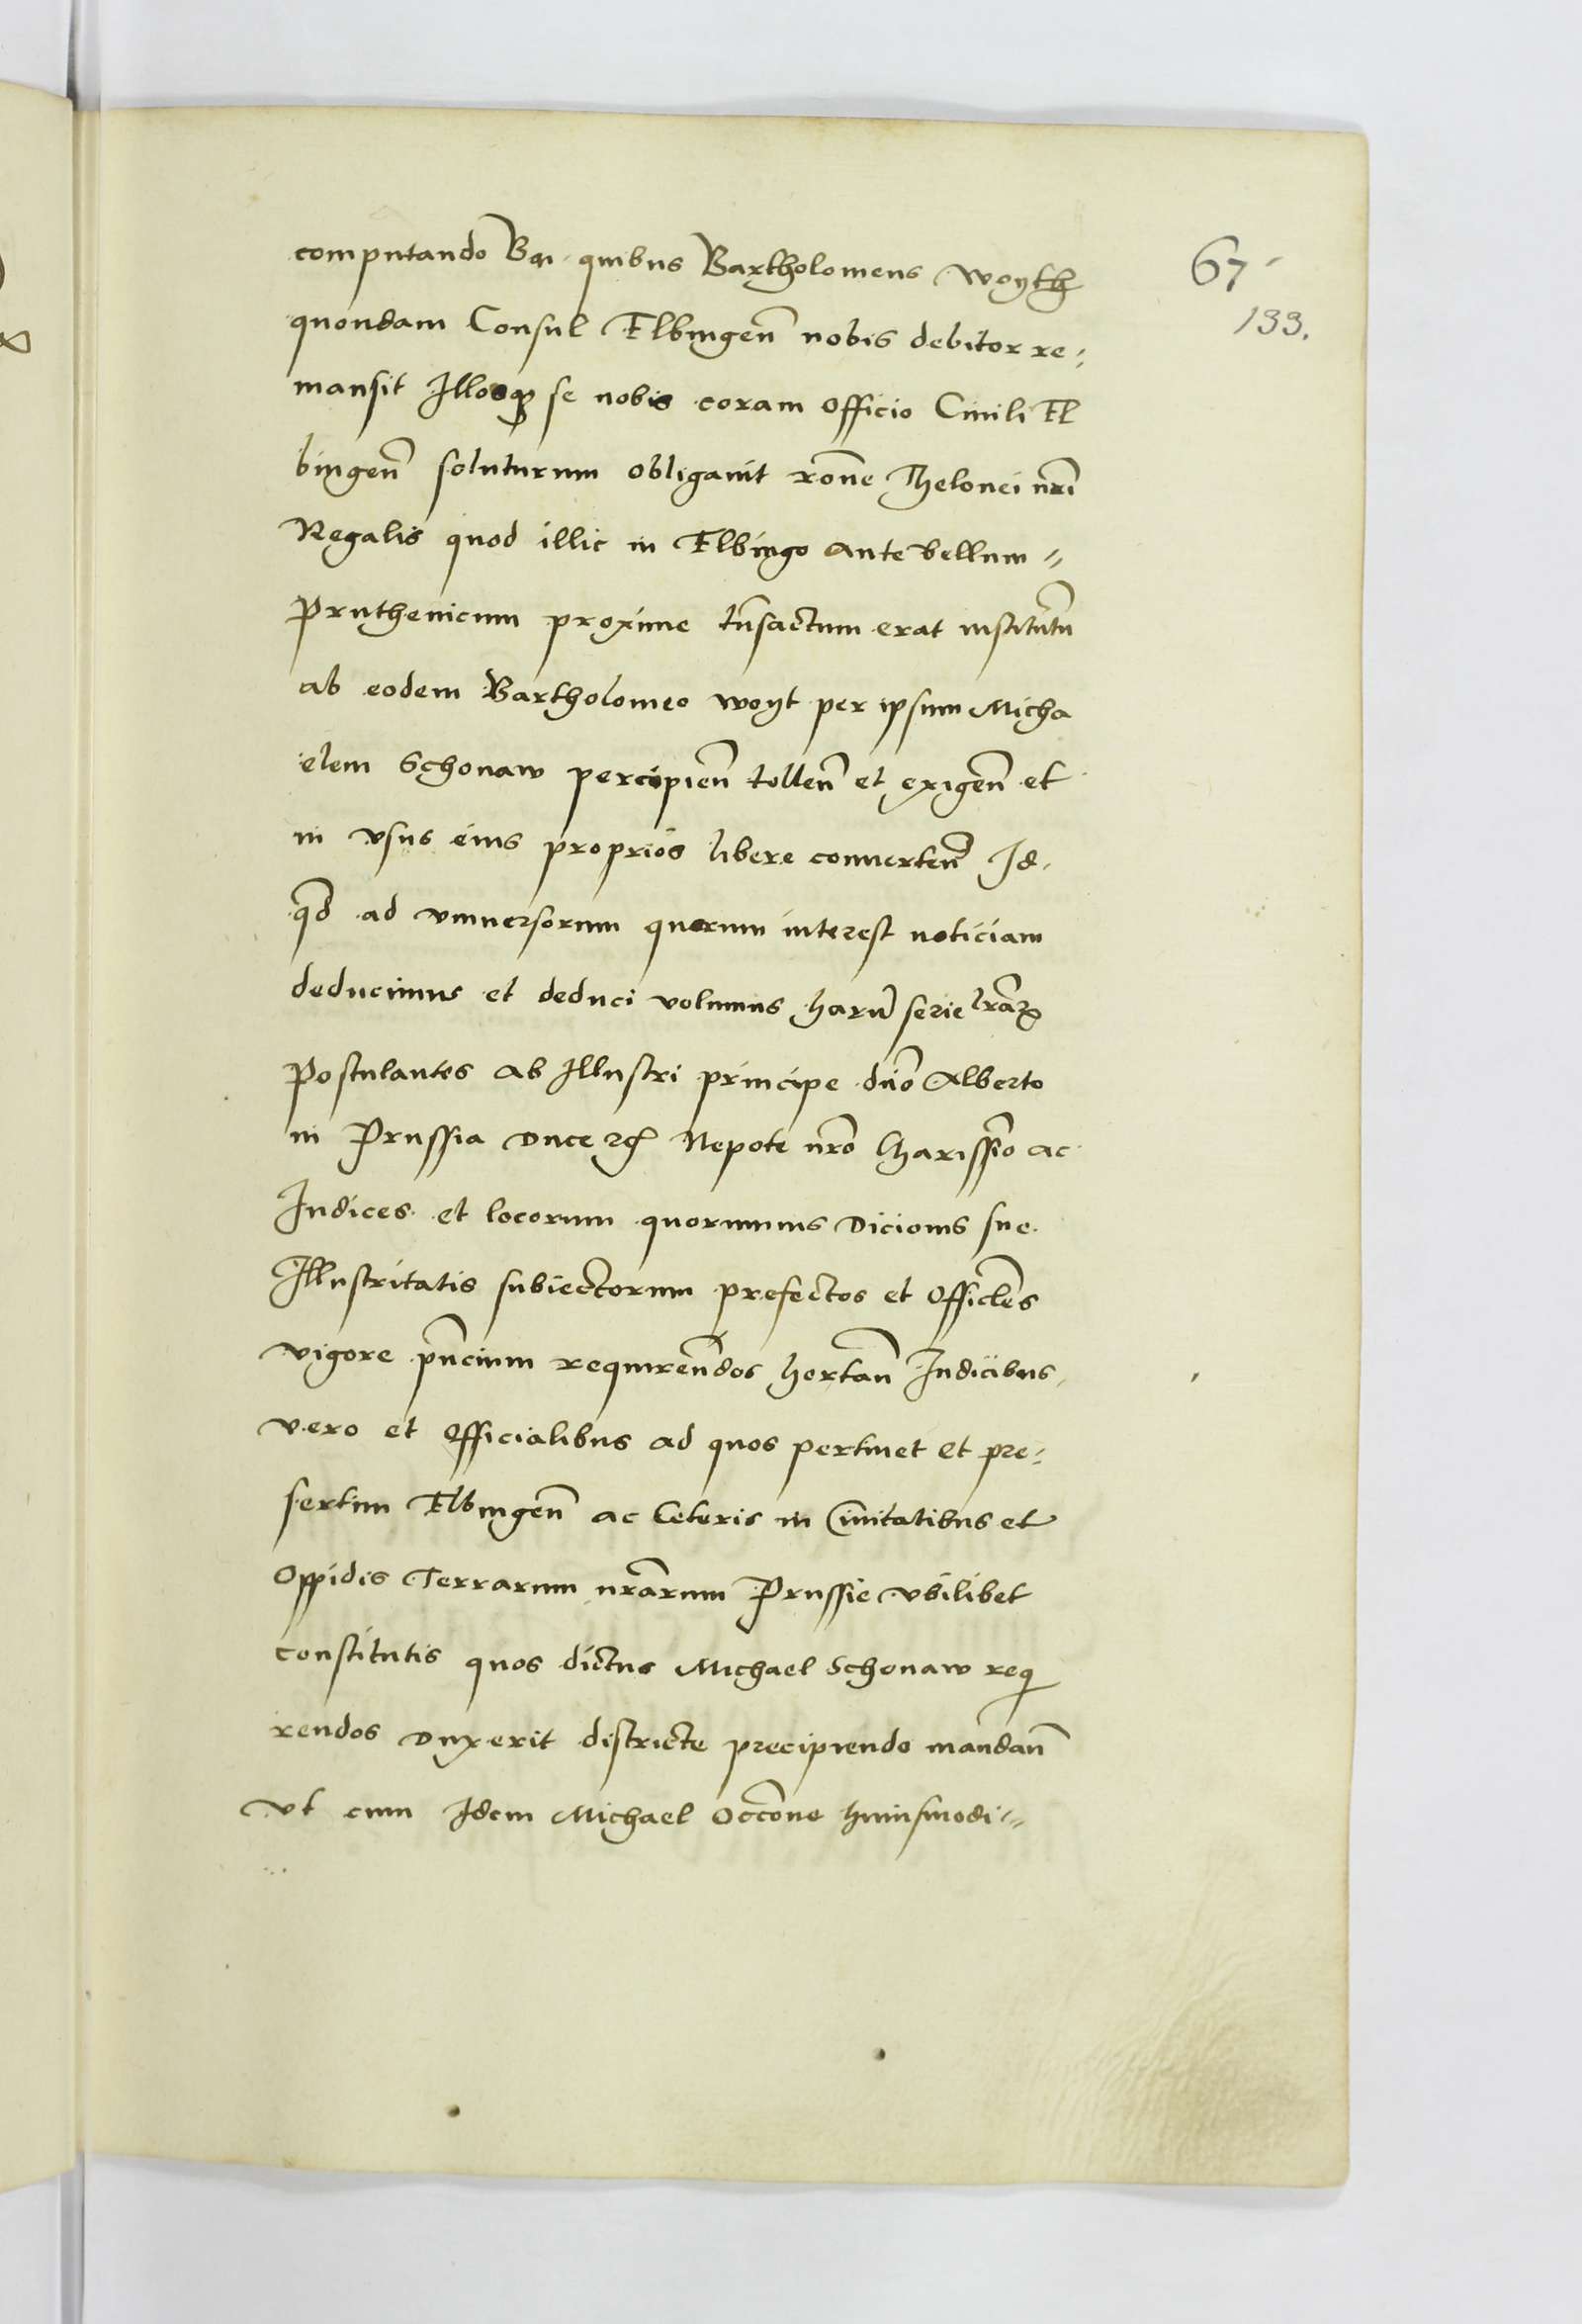 computando In quibus Bartholomeus Woyth
67
133.
quondam Consul Elbingeñ nobis debitor re-
mansit Illosq se nobis coram Officio Ciuili El
bingeñ soluturum obligauit rõne Thelonei nr̃i
Regalis quod illic in Elbingo ante bellum
Pruthenicum proxime trñsactum erat institutũ
ab eodem Bartholomeo woyt per ipsum Micha
elem Schonaw percipieñ tolleñ et exigeñ et
in vsus eius proprios libere conuerteñ Id
qd ad vniuersorum quorum interest noticiam
deducimus et deduci volumus harũ serie lrãrꝫ
Postulantes ab Illustri principe dño Alberto
in Prussia Duce rc̃ Nepote nrõ Charissĩo ac
Iudices et locorum quorumuis Dicionis sue
Illustritatis subiectorum prefectos et Officles̃
vigore pñcium requirendos hortañ Iudicibus
vero et Officialibus ad quos pertinet et pre-
sertim Elbingeñ ac Ceteris in Ciuitatibus et
Oppidis Terrarum nrãrum Prussie vbilibet
constitutis quos dictus Michael Schonaw requi
rendos Duxerit districte precipiendo mandañ
vt cum Idem Michael Occõne huiusmodi